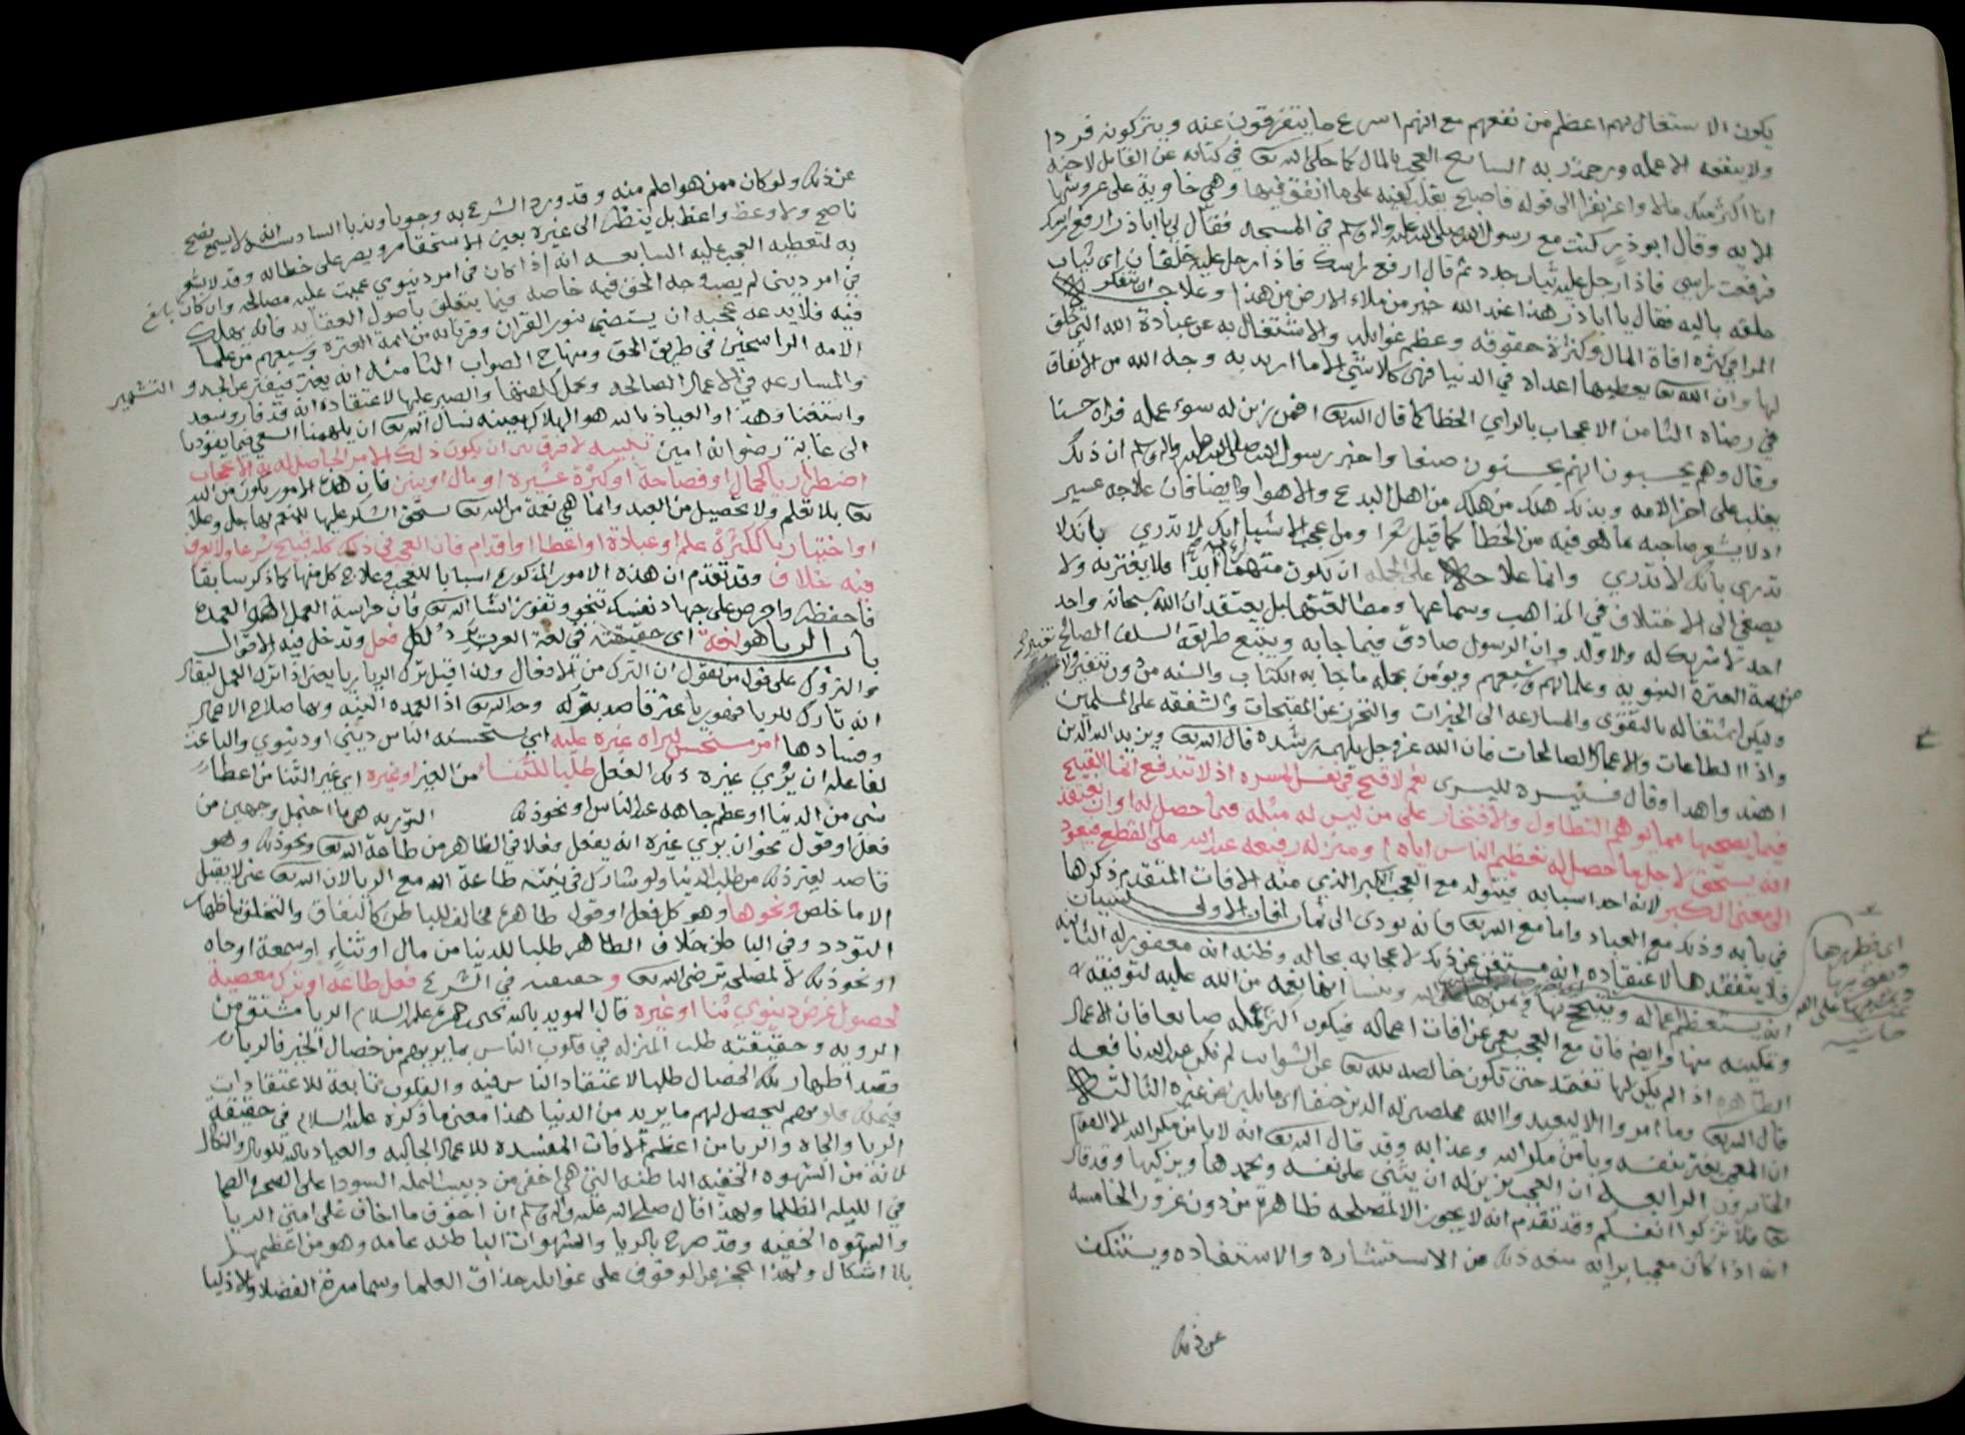 يكون الاستغال بهم اعظم من نفعهم مع انهم اسرع ما يتفرقون عنه ويتركونه فردا
ولا ينفعه الا عمله ورحمة ربه السابع العجب بالمال كما حكى الله تعالى في كتابه عن القائل لاخيه
انا اكثر منك مالا واعز نفرا الى قوله فاصبح يقلب كفيه على ما انفق فيها وهي خاوية على عروشها
الايه وقال ابو ذر كنت مع رسول الله صلى الله عليه واله وسلم في المسجد فقال لي يا اباذر ارفع راسك
فرفعت راسي فاذا رجل عليه ثياب جدد ثم قال ارفع راسك فاذا رجل عليه خلقان اي ثياب
خلقه باليه فقال يا اباذر هذا عند الله خير من ملاء الارض من هذا وعلاجه التفكر
في كثرة افاة المال وكثرة حقوقه وعظم غوايله والاشتغال به عن عبادة الله التي خلق
لها وان الله تعالى يعطيها اعداه في الدنيا فهي كلا شي الا ما اريد به وجه الله من الانفاق
في رضاه الثامن الاعجاب بالراي الخطا كما قال الله تعالى افمن زين له سوء عمله فراه حسنا
وقال وهم يحسبون انهم يحسنون صنعا واخبر رسول الله صلى الله عليه واله وسلم ان ذلك
يغلب على اخر الامه وبذلك هلك من هلك من اهل البدع والاهوا وايضا فان علاجه عسير
اذ لا يشعر صاحبه ما هو فيه من الخطا كما قيل شعرا ومن اعجب الاشيا انك لا تدري بانك لا
تدري بانك لا تدري وانما علاجه على الجمله ان يكون متهما لرايه ابدا فلا يغتر به ولا
يصغي الى الاختلاف في المذاهب وسماعها ومطالعتها بل يعتقد ان الله سبحانه واحد
احد لا شريك له ولا ولد وان الرسول صادق فيما جا به ويتبع طريقة السلف الصالح
من العترة النبويه وعلمائهم وشيعهم ويؤمن بجمله ما جا به الكتاب والسنه من دون تنقير
وليكن اشتغاله بالتقوى والمسارعه الى الخيرات والتحرز عن المقبحات والشفقه على المسلمين
واذا الطاعات والاعمال الصالحات فان الله عز وجل يلهمه رشده قال الله تعالى ويزيد الله الذين
اهتدوا هدا وقال فسنيسره لليسرى نعم لا قبح في نفس المسره اذ لا تندفع انما القبيح
فيما يصحبها مما يوهم التطاول والافتخار على من ليس له مثله فيما حصل له او ان يعتقد
انه يستحق لاجل ما حصل له تعظيم الناس اياه ومنزله رفيعه عند الله على القطع فيعود
الى معنى الكبر لانه احد اسبابه فيتولد مع العجب الكبر الذي منه الافات المتقدم ذكرها
في بابه وذلك مع العباد واما مع الله تعالى فانه يودى الى ثمان افات الاولى نسيان
فلا يتفقدها لاعتقاده انه مستغن عن ذلك لاعجابه بحاله وظنه انه مغفور له الثانيه
انه يستعظم اعماله ويتبجح بها ويمن بها على الله وينسا انها نعمه من الله عليه لتوفيقه له
وتمكينه منها وايضا فان مع العجب يعمى عن افات اعماله فيكون اكثر عمله ضايعا فان الاعمال
الظاهره اذا لم يكن لها تفقد حتى تكون خالصه لله تعالى عن الشوايب لم تكن عند الله نافعه
قال الله تعالى وما امروا الا ليعبدوا الله مخلصين له الدين حنفا اي مايلين عن غيره الثالثه
ان المعجب يغتر بنفسه ويامن مكر الله وعذابه وقد قال الله تعالى انه لا يامن مكر الله الا القوم
الخاسرون الرابعه ان العجب يزين له ان يثني على نفسه ويحمدها ويزكيها وقد قال
تعالى فلا تزكوا انفسكم وقد تقدم انه لا يجوز الا لمصلحه ظاهرة من دون غرور الخامسه
انه اذا كان معجبا برايه منعه ذلك من الاستشاره والاستفاده ويستنكف
عن ذلك
حاشيه
عن ذلك ولو كان ممن هو اعلم منه وقد ورد الشرع به وجوبا وندبا السادسه انه لا يسمع نصح
ناصح ولا وعظ واعظ بل ينظر الى غيره بعين الاستحقار ويصر على خطائه وقد لا يشعر
به لتغطيه العجب عليه السابعه انه اذا كان في امر دنيوي عميت عليه مصالحه وان كان
في امر ديني لم يصب وجه الحق فيه خاصه فيما يتعلق باصول العقايد فانه يهلك
فيه فلا يدعه عجبه ان يستضي بنور القران وقرنائه من ائمة العترة وشيعهم من علما
الامه الراسخين في طريق الحق ومنهاج الصواب الثامنه انه يغتر فيفتر عن الجد والتشمير
والمسارعه في الاعمال الصالحه وتحمل كلفتها والصبر عليها لاعتقاده انه قد فاز وسعد
واستغنا وهذا والعياذ بالله هو الهلاك بعينه نسال الله تعالى ان يلهمنا السعي فيما يقودنا
الى غاية رضوانه امين تنبيه لا فرق بين ان يكون ذلك الامر الحاصل له به الاعجاب
اضطراريا كجمال او فصاحة او كثرة عشيره او مال او بنين فان هذه الامور تكون من الله
تعالى بلا تعلم ولا تحصيل من العبد وانما هي نعمة من الله تعالى يستحق الشكر عليها للمنعم بها جل وعلا
او اختياريا ككثرة علم او عبادة او اعطا او اقدام فان العجب في ذلك كله قبيح شرعا ولا يعرف
فيه خلاف وقد تقدم ان هذه الامور المذكوره اسبابا للعجب وعلاج كل منها كما ذكر سابقا
فاحفظه واحرص على جهاد نفسك تنجو وتفوز انشا الله تعالى فان حراسة العمل اهم العمده
باب الريا هو لغة اي حقيقته في لغة العرب لكل فعل وتدخل فيه الاقوال
والتروك على قول من يقول ان الترك من الافعال ولذا قيل ترك الريا ريا يعني اذا ترك العمل ليقال
انه تارك للريا فهو ريا غير قاصد بتركه وجه الله تعالى اذ العمده النيه وبها صلاح الاعمال
وفسادها امر مستحسن ليراه غيره عليه اي يستحسنه الناس ديني او دنيوي والباعث
لفاعله ان يري غيره ذلك الفعل طلبا للثناء من الغير او غيره اي غير الثنا من اعطا
شي من الدنيا او عظم جاهه عند الناس او نحو ذلك التوريه هي ما احتمل وجهين من
فعل او قول نحو ان يوري غيره انه يفعل فعلا في الظاهر من طاعة الله تعالى ونحو ذلك وهو
قاصد لغير ذلك من طلب الدنيا ولو شارك في نيته طاعة الله مع الريا لان الله تعالى غني لا يقبل
الا ما خلص ونحوها وهو كل فعل او قول ظاهره مخالف للباطن كالنفاق والتملق باظهار
التودد وفي الباطن خلاف الظاهر طلبا للدنيا من مال او ثناء او سمعة او جاه
او نحو ذلك لا لمصلحه ترضي الله تعالى وحقيقته في الشرع فعل طاعة او ترك معصية
لحصول غرض دنيوي ثنا او غيره قال المويد بالله يحيى بن حمزه عليه السلام الريا مشتق من
الرويه وحقيقته طلب المنزله في قلوب الناس بما يوريهم من خصال الخير فالريا
قصد اظهار تلك الخصال طلبا لاعتقاد الناس فيه والقلوب تابعة للاعتقادات
فيملك قلوبهم ليحصل لهم ما يريد من الدنيا هذا معنى ما ذكره عليه السلام في حقيقة
الريا والجاه والريا من اعظم الافات المفسده للاعمال الجالبه والعياذ بالله للوبال والنكال
لانه من الشهوه الخفيه الباطنه التي هي اخفى من دبيب النمله السودا على الصخره الصما
في الليله الظلما ولهذا قال صلى الله عليه واله وسلم ان اخوف ما اخاف على امتي الريا
والشهوه الخفيه وقد صرح بالريا والشهوات الباطنه عامه وهو من اعظمها
بلا اشكال ولهذا عجز عن الوقوف على غوايله حذاق العلما وسماسرة الفضلا والاذكيا